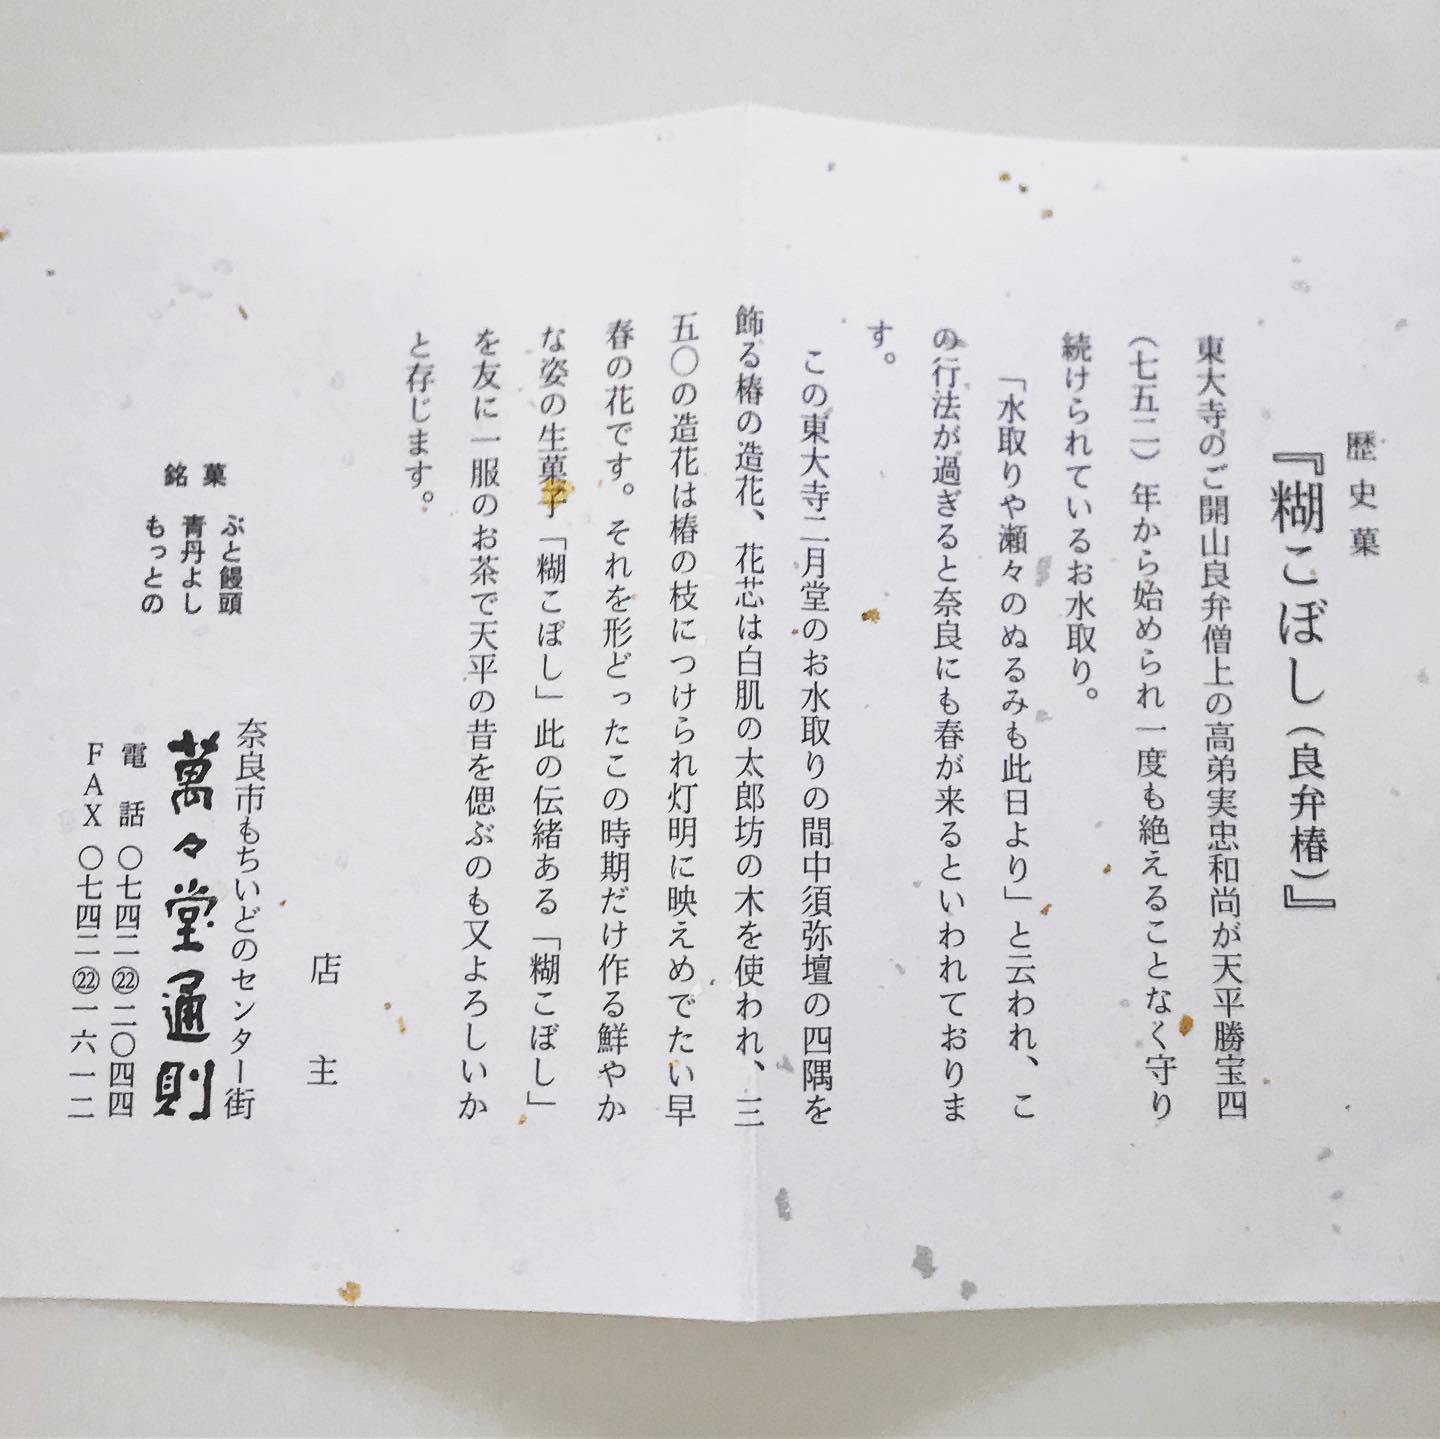 歴史菓
『糊こぼし（良弁椿）』
東大寺のご開山良弁僧上の高弟実忠和尚が天平勝宝四
（七五二）年から始められ一度も絶えることなく守り
続けられているお水取り。
「水取りや瀬々のぬるみも此日より」と云われ、こ
の行法が過ぎると奈良にも春が来るといわれておりま
す。
この東大寺二月堂のお水取りの間中須弥壇の四隅を
飾る椿の造花、花芯は白肌の太郎坊の木を使われ、三
五〇の造花は椿の枝につけられ灯明に映えめでたい早
春の花です。それを形どったこの時期だけ作る鮮やか
な姿の生菓子「糊こぼし」此の伝緒ある「糊こぼし」
を友に一服のお茶で天平の昔を偲ぶのも又よろしいか
と存じます。
店主
奈良市もちいどのセンター街
萬々堂通則
電話 〇七四二㉒二〇四四
ＦＡＸ 〇七四二㉒一六一二
銘菓
ぶと饅頭
青丹よし
もっとの